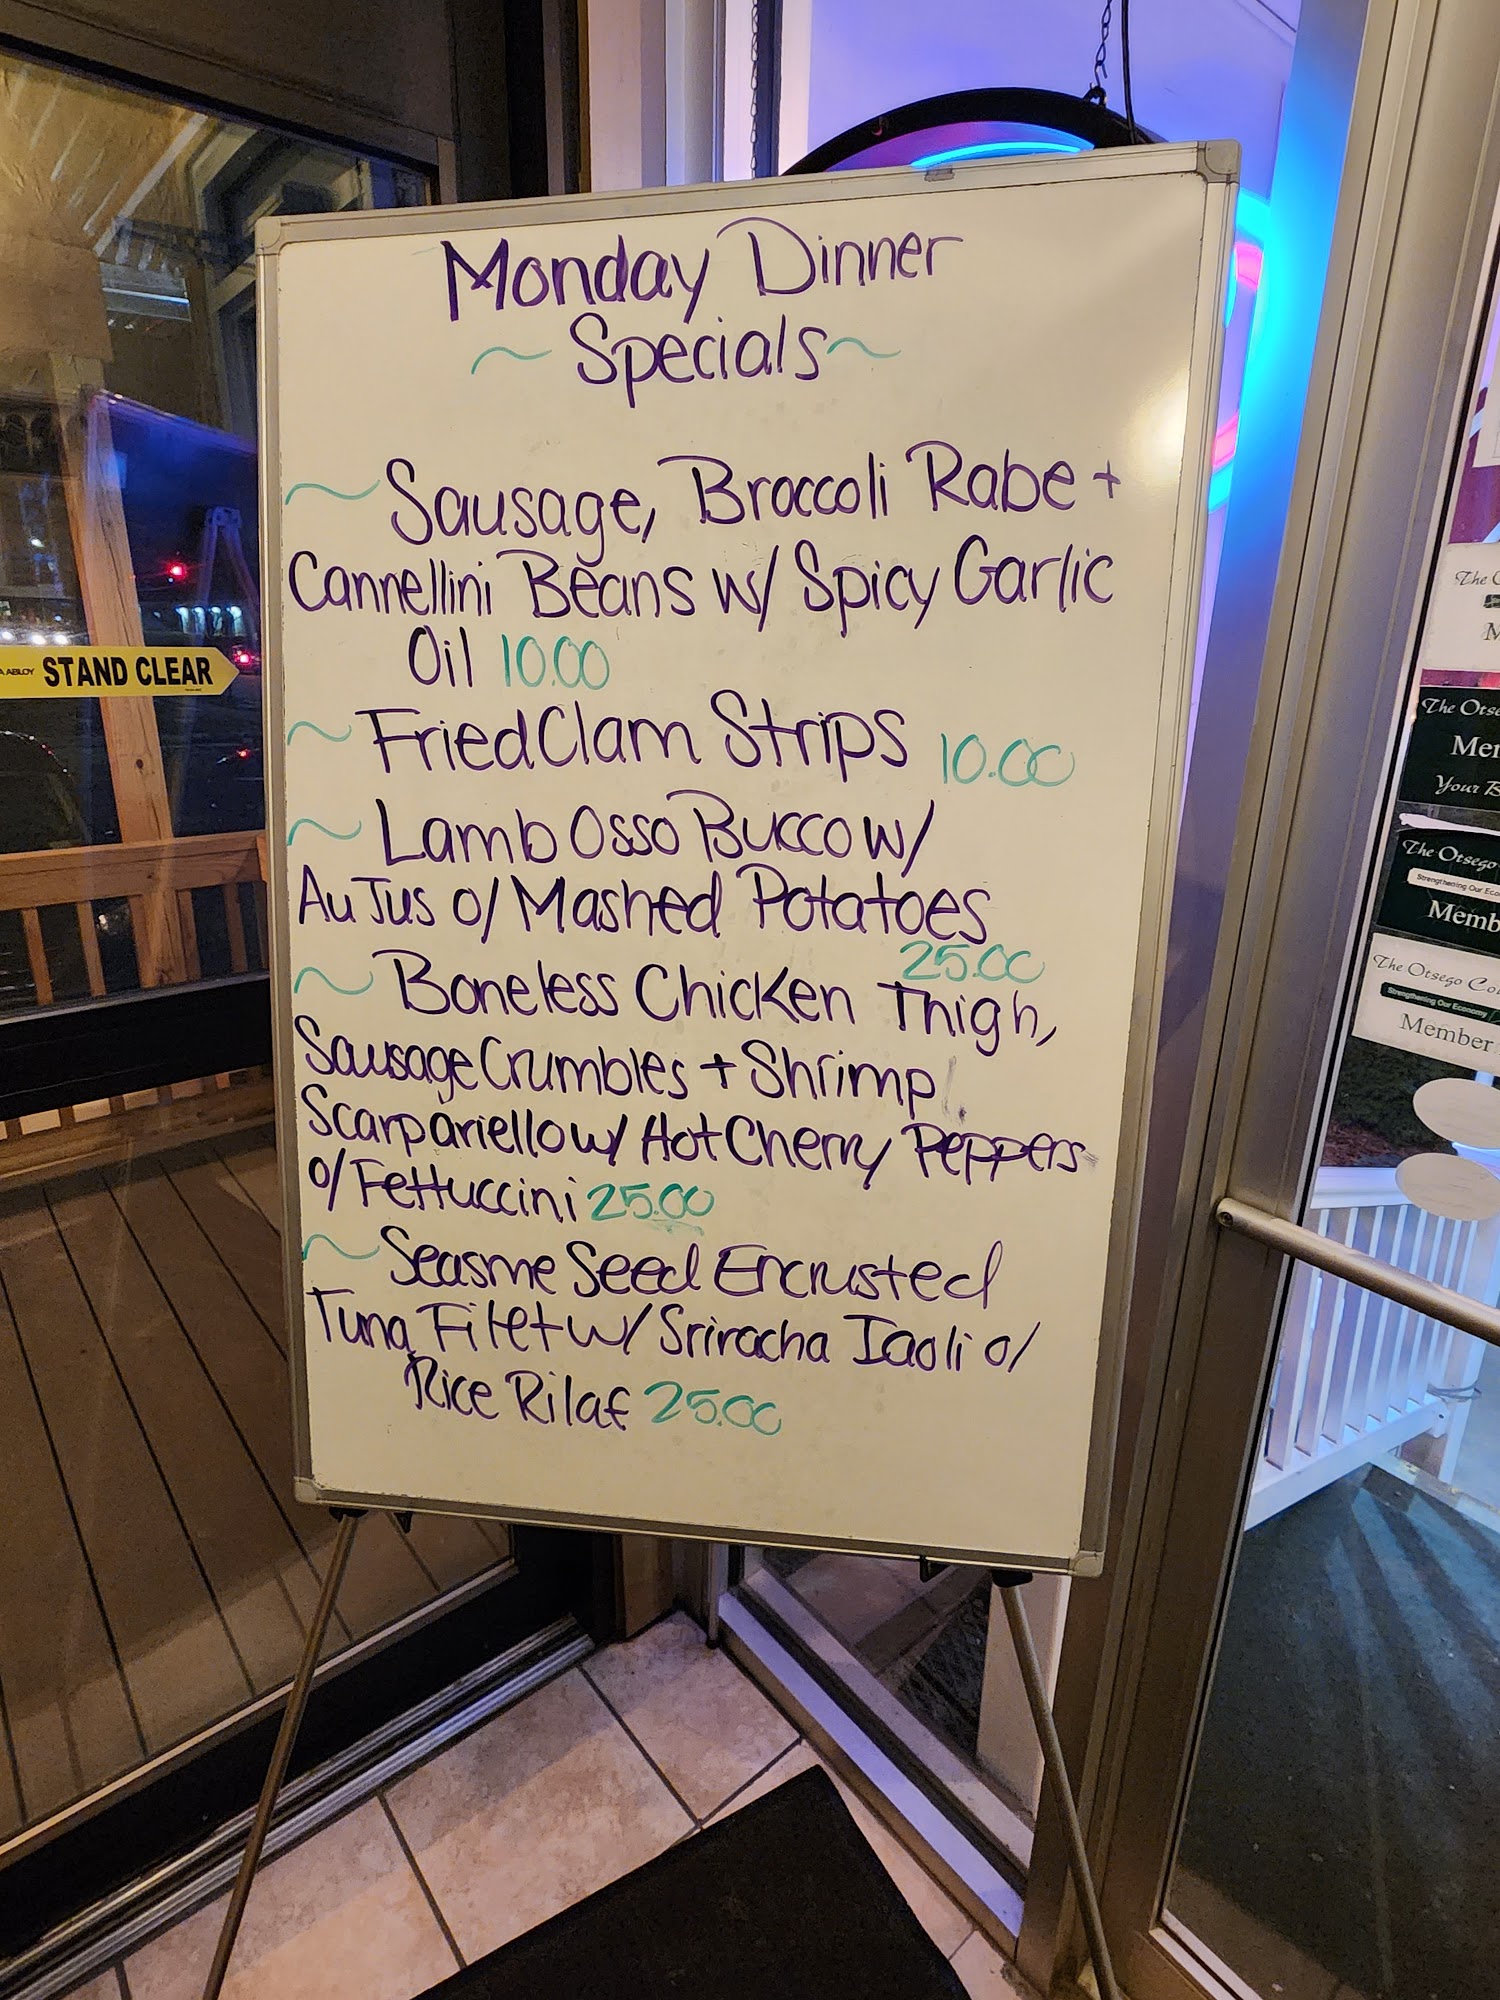 Monday Dinner
~ Specials ~
~ Sausage, Broccoli Rabe +
Cannellini Beans w/ Spicy Garlic
Oil 10.00
~ Fried Clam Strips 10.00
~ Lamb Osso Bucco w/
Au Jus o/ Mashed Potatoes
25.00
~ Boneless Chicken Thigh,
Sausage Crumbles + Shrimp
Scarpariello w/ Hot Cherry Peppers
o/ Fettuccini 25.00
~ Seasme Seed Encrusted
Tuna Filet w/ Sriracha Iaoli o/
Rice Rilaf 25.00
STAND CLEAR
The Otse
Mem
Your B
The Otsego
Strengthening Our Eco
Memb
The Otsego Co
Strengthening Our Economy
Member